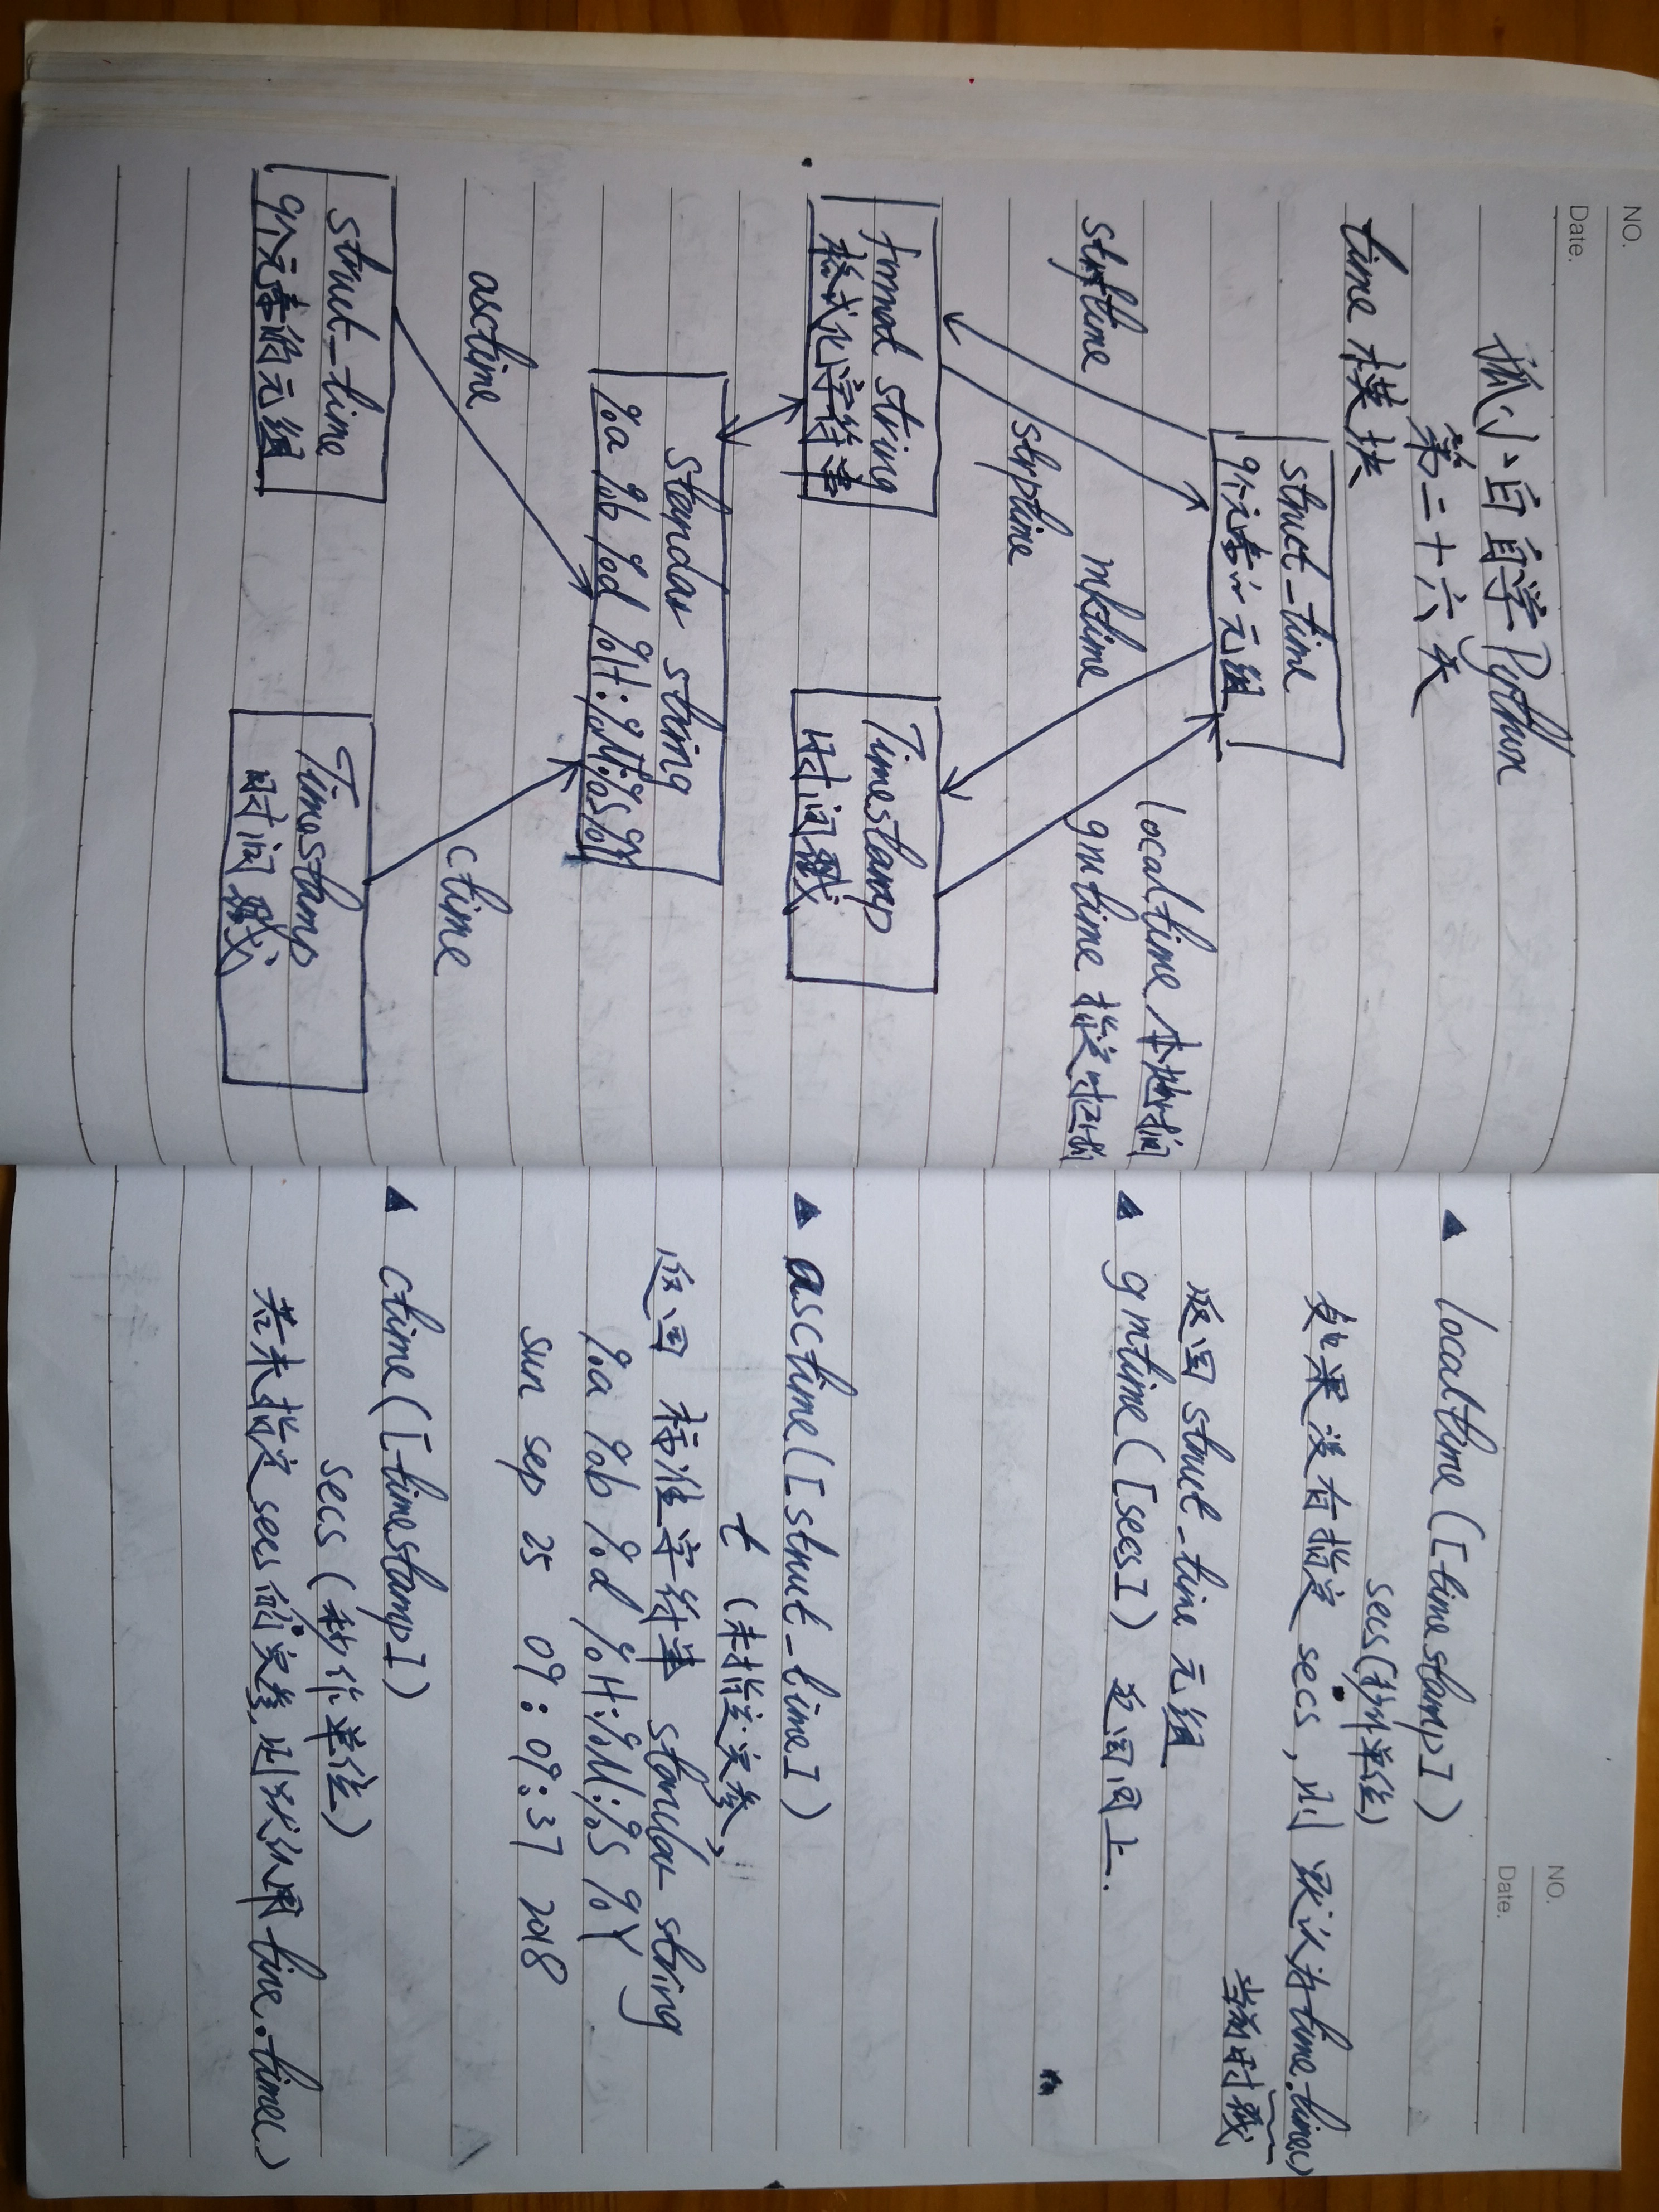 NO.
Date.
孤小白自学Python
第二十六天
time 模块
struct_time
9个元素的元组
localtime 本地时间
strftime
mktime
gmtime 指定时区时间
strptime
format string
格式化字符串
Timestamp
时间戳
standar string
%a %b %d %H:%M:%S %Y
asctime
ctime
struct_time
9个元素的元组
Timestamp
时间戳
NO.
Date.
▲ localtime([timestamp])
secs(秒作单位)
如果没有指定 secs, 则默认为time.time()
当前时戳
返回 struct_time 元组
▲ gmtime([secs]) 返回同上.
▲ asctime([struct_time])
t (未指定实参,
返回 标准字符串 standar string
%a %b %d %H:%M:%S %Y
sun sep 25 09:09:37 2018
▲ ctime([timestamp])
secs(秒作单位)
若未指定secs的实参,则默认用time.time()